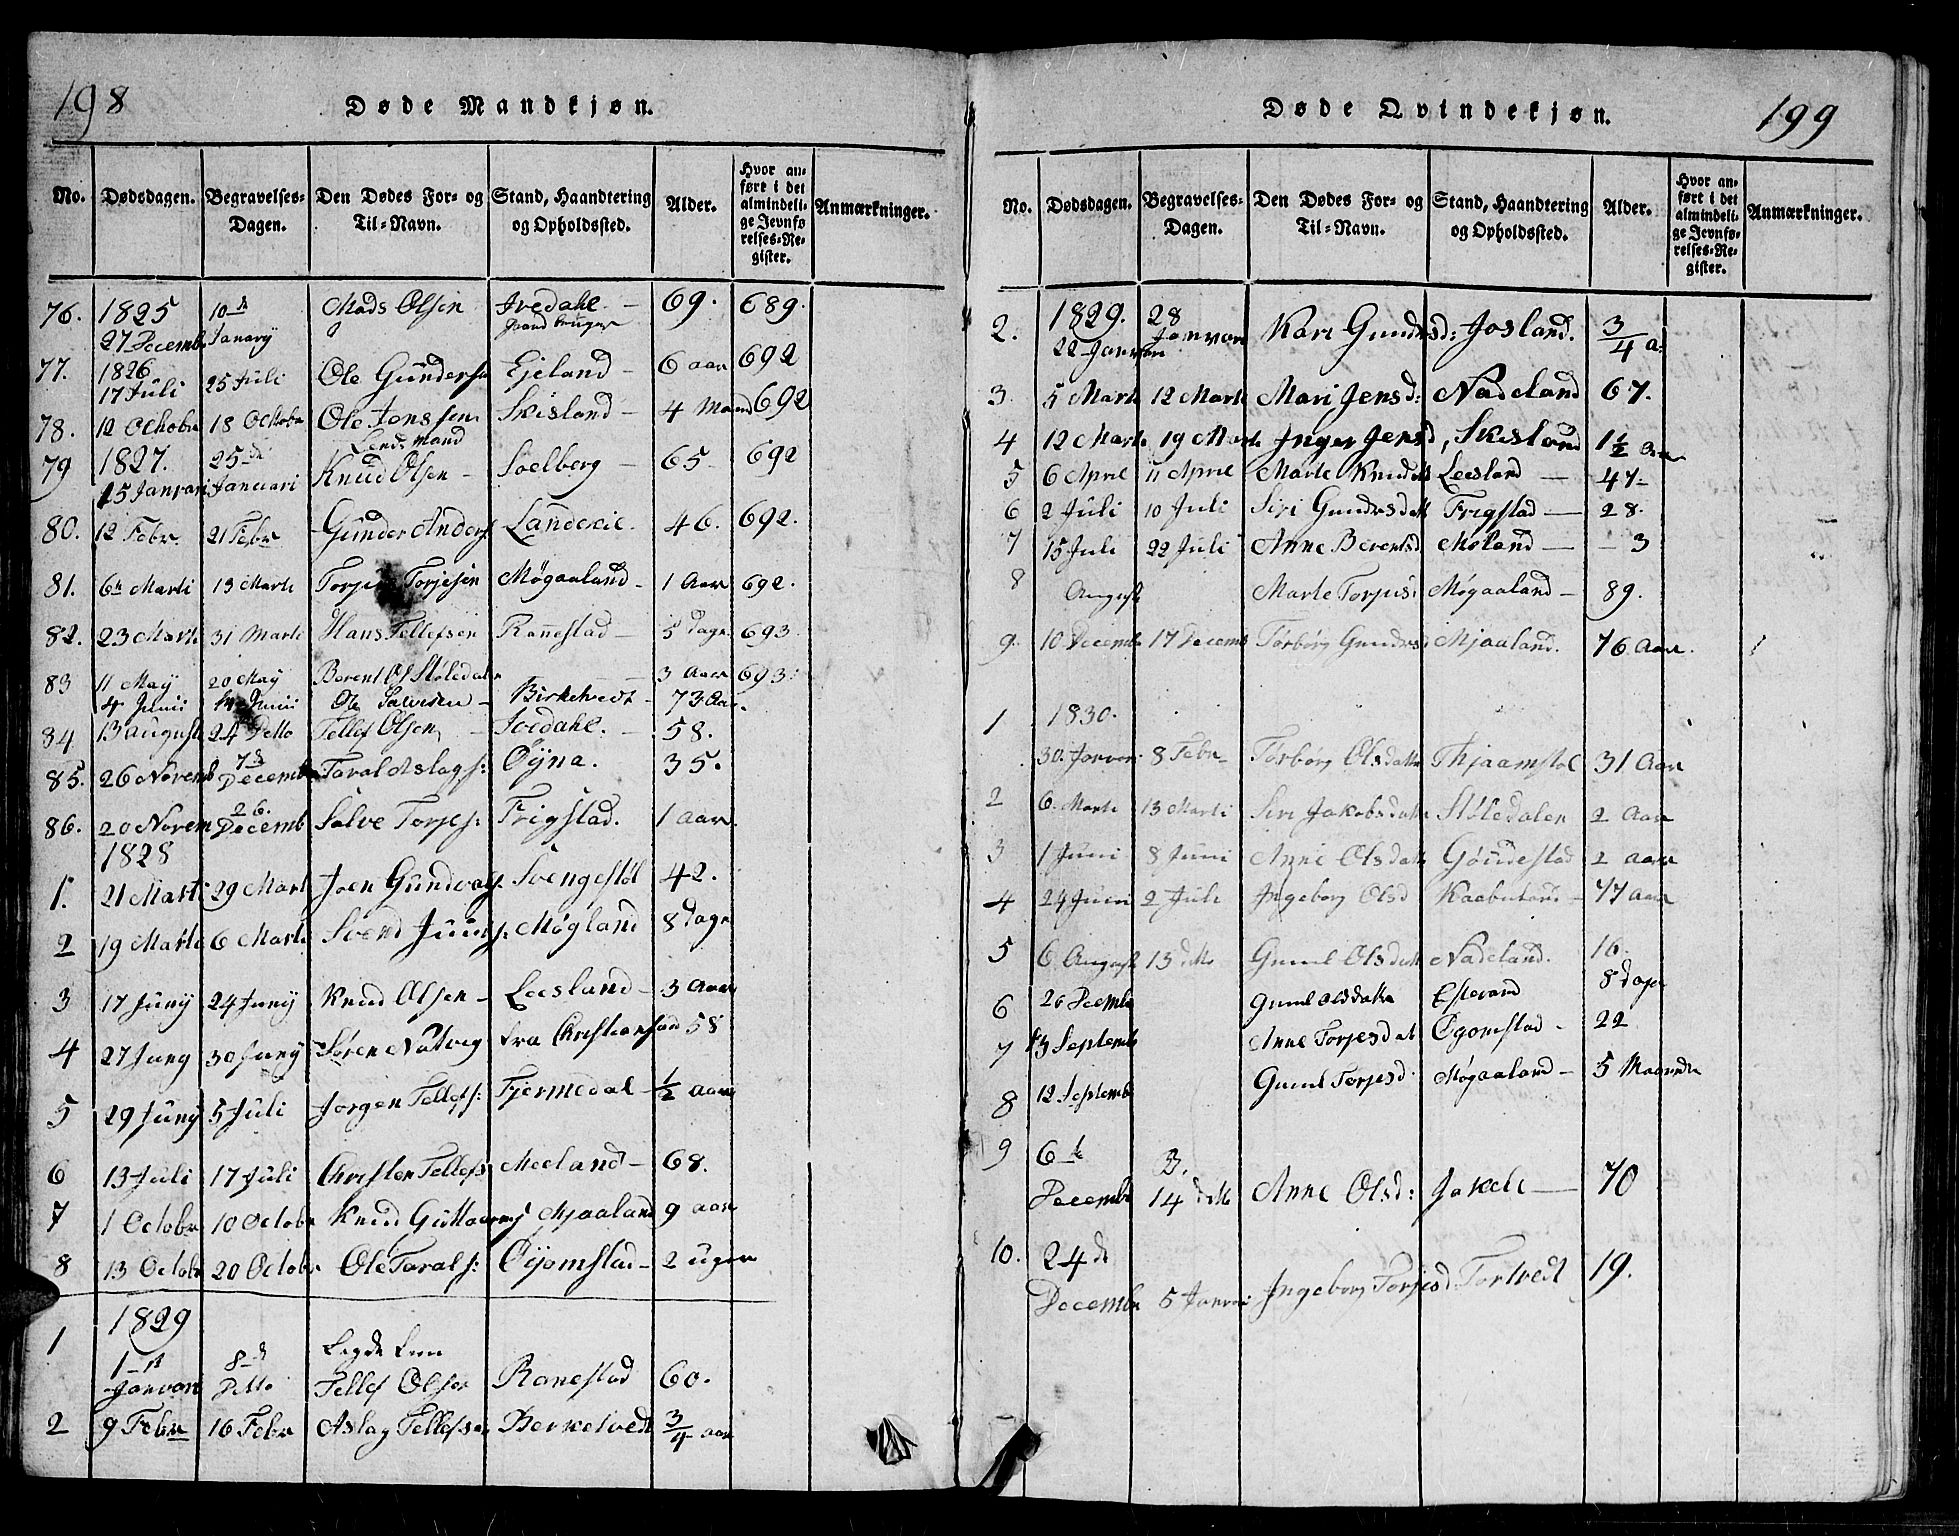 198
Døde Mandkjøn.
No. Dødsdagen. Begravelses-Dagen. Den Dødes For- og Til-Navn. Stand, Haandtering og Opholdssted. Alder. Hvor anført i det almindelige Jevnførelses-Register. Anmærkninger.
76. 1825 27 Decemb 10de Janary Mads Olsen Ivedahl Gaardbruger 69. 689.
77. 1826 17 Juli 25 Juli Ole Gunders Ejeland 6 aar 692
78. 12 Octobr 18 Octobr Ole Jonssen Skisland 4 Maand 692
79 1827. 15 Janvari 25de Januari Lendsmand Knud Olsen Soelberg 65 692
80. 12 Febr. 21 Febr Gunder Anders Landerie. 46. 692.
81. 6te Marti 13 Marti Torjus Torjesen Møgaaland 1 Aar 692.
82. 23 Marti 31 Marti Hans Tellefsen Rannestad 5 dage 693
83 11 May 20 May Berent Ols Støledalen 3 Aar 693.
4 Junii 14 Junii Ole Salvesen Birketvedt 73 Aar.
84 13 August 24 Detto Tellef Olsen Ivedahl. 58.
85. 26 Novemb 7de Decemb Taral Aslags: Øyna. 35.
86. 20 Novem 26. Decemb Salve Torjes: Frigstad. 1 aar.
1828
1. 21 Marti 29 Mart Joen Gundvals Svengestøl 42.
2 19 Marti 6 Marti Svend Juuls: Møgland 8 dage
3 17 Juny 24 Juny Knud Olsen Leesland 3 Aar
4 27 Juny 30 Juny Søren Natvig fra Christiansad 58
5 29 Juny 5 Juli Jorgen Tellefs: Fjermedal 1/2 aar
6 13 Juli 17 Juli Christen Tellefs Meeland 68.
7 1 Octobr 10 Octobr Knud Guttorms Mjaaland 9 aar
8 13 Octobr 20 Octobr Ole Tarals: Øyomstad 2 uger
1829
1 1ste Janvari 8de Detto Legdelem Tellef Olsen Ranestad 60.
2 9 Febr 16 Febr Aslag Tellefsen Berketvedt 3/4 aar
199
Døde Qvindekjøn.
No. Dødsdagen. Begravelses-Dagen. Den Dødes For- og Til-Navn. Stand, Haandtering og Opholdssted. Alder. Hvor anført i det almindelige Jevnførelses-Register. Anmærkninger.
2. 1829. 22 Janvari 28 Janvari Kari Gundersd: Josland. 3/4 a:
3. 5 Marti 12 Marti Mari Jensd: Nadeland 67.
4 12 Marti 19 Marti Inger Jensd, Skisland 1 1/2 Aar
5 6 April 11 April Marte Knudsdt Leesland 47
6 2 Juli 10 Juli Siri Gundrsdatt Frigstad 28.
7 15 Juli 22 Juli Anne Berentsd Moland 3
8 August Marte Torjus: Møgaaland 89.
9. 10 Decemb 17 Decemb Torborg Gundrsd Mjaaland. 76 Aar.
1 1830.
30. Janvar 8 Febr Torborg Olsdatter Thjaamstøl 31 Aar
2 6. Marti 13 Marti Siri Jakobsdatter Støledalen 2 Aar
3 1 Juni 8 Juni Anne Olsdatt Gøudestad 2 aar
4 24 Juni 2 Juli Ingeborg Olsd Kaabuland 77 aar
5 6 August 13 detto Gunil Olsdatt Nadeland. 16.
6 26 Decemb Gunil Olsdatter Estevand 8 dage
7 13 Septemb Anne Torjesdat Øyomstad 22
8 12 Septemb Gunil Torjesd Møgaaland 5 Maaneder
9 6te Decembr 14 detto Anne Olsd: Jakele 70
10. 24de Decembr 5 Janvari Ingeborg Torjesd Tortvedt 19.